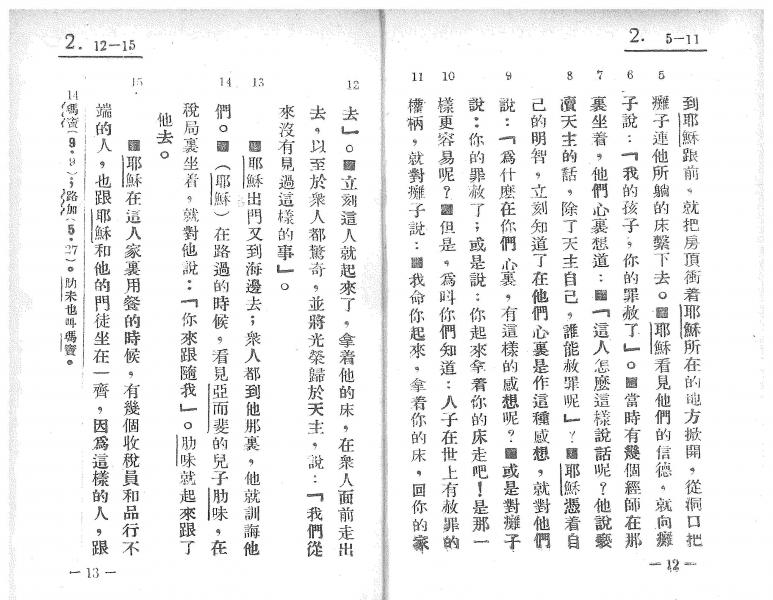 2. 5—11
5
6
7
8
9
10
11
到耶穌跟前,就把房頂衝着耶穌所在的地方掀開,從洞口把
癱子連他所躺的床繫下去。■耶穌看見他們的信德,就向癱
子說:「我的孩子,你的罪赦了」。■當時有幾個經師在那
裏坐着,他們心裏想道:■「這人怎麼這樣說話呢?他說褻
瀆天主的話,除了天主自己,誰能赦罪呢」?■耶穌憑着自
己的明智,立刻知道了在他們心裏是作這種感想,就對他們
說:「爲什麼在你們心裏,有這樣的感想呢?■或是對癱子
說:你的罪赦了;或是說:你起來拿着你的床走吧!是那一
樣更容易呢?■但是,爲叫你們知道:人子在世上有赦罪的
權柄,就對癱子說:■我命你起來,拿着你的床,回你的家
— 12 —
2. 12—15
12
13
14
15
去」。■立刻這人就起來了,拿着他的床,在衆人面前走出
去,以至於衆人都驚奇,並將光榮歸於天主,說:「我們從
來沒有見過這樣的事」。
■耶穌出門又到海邊去;衆人都到他那裏,他就訓誨他
們。■(耶穌)在路過的時候,看見亞而斐的兒子肋味,在
稅局裏坐着,就對他說:「你來跟隨我」。肋味就起來跟了
他去。
■耶穌在這人家裏用餐的時候,有幾個收稅員和品行不
端的人,也跟耶穌和他的門徒坐在一齊,因爲這樣的人,跟
14瑪竇(9.9);路加(5.27)。肋未也叫瑪竇。
— 13 —